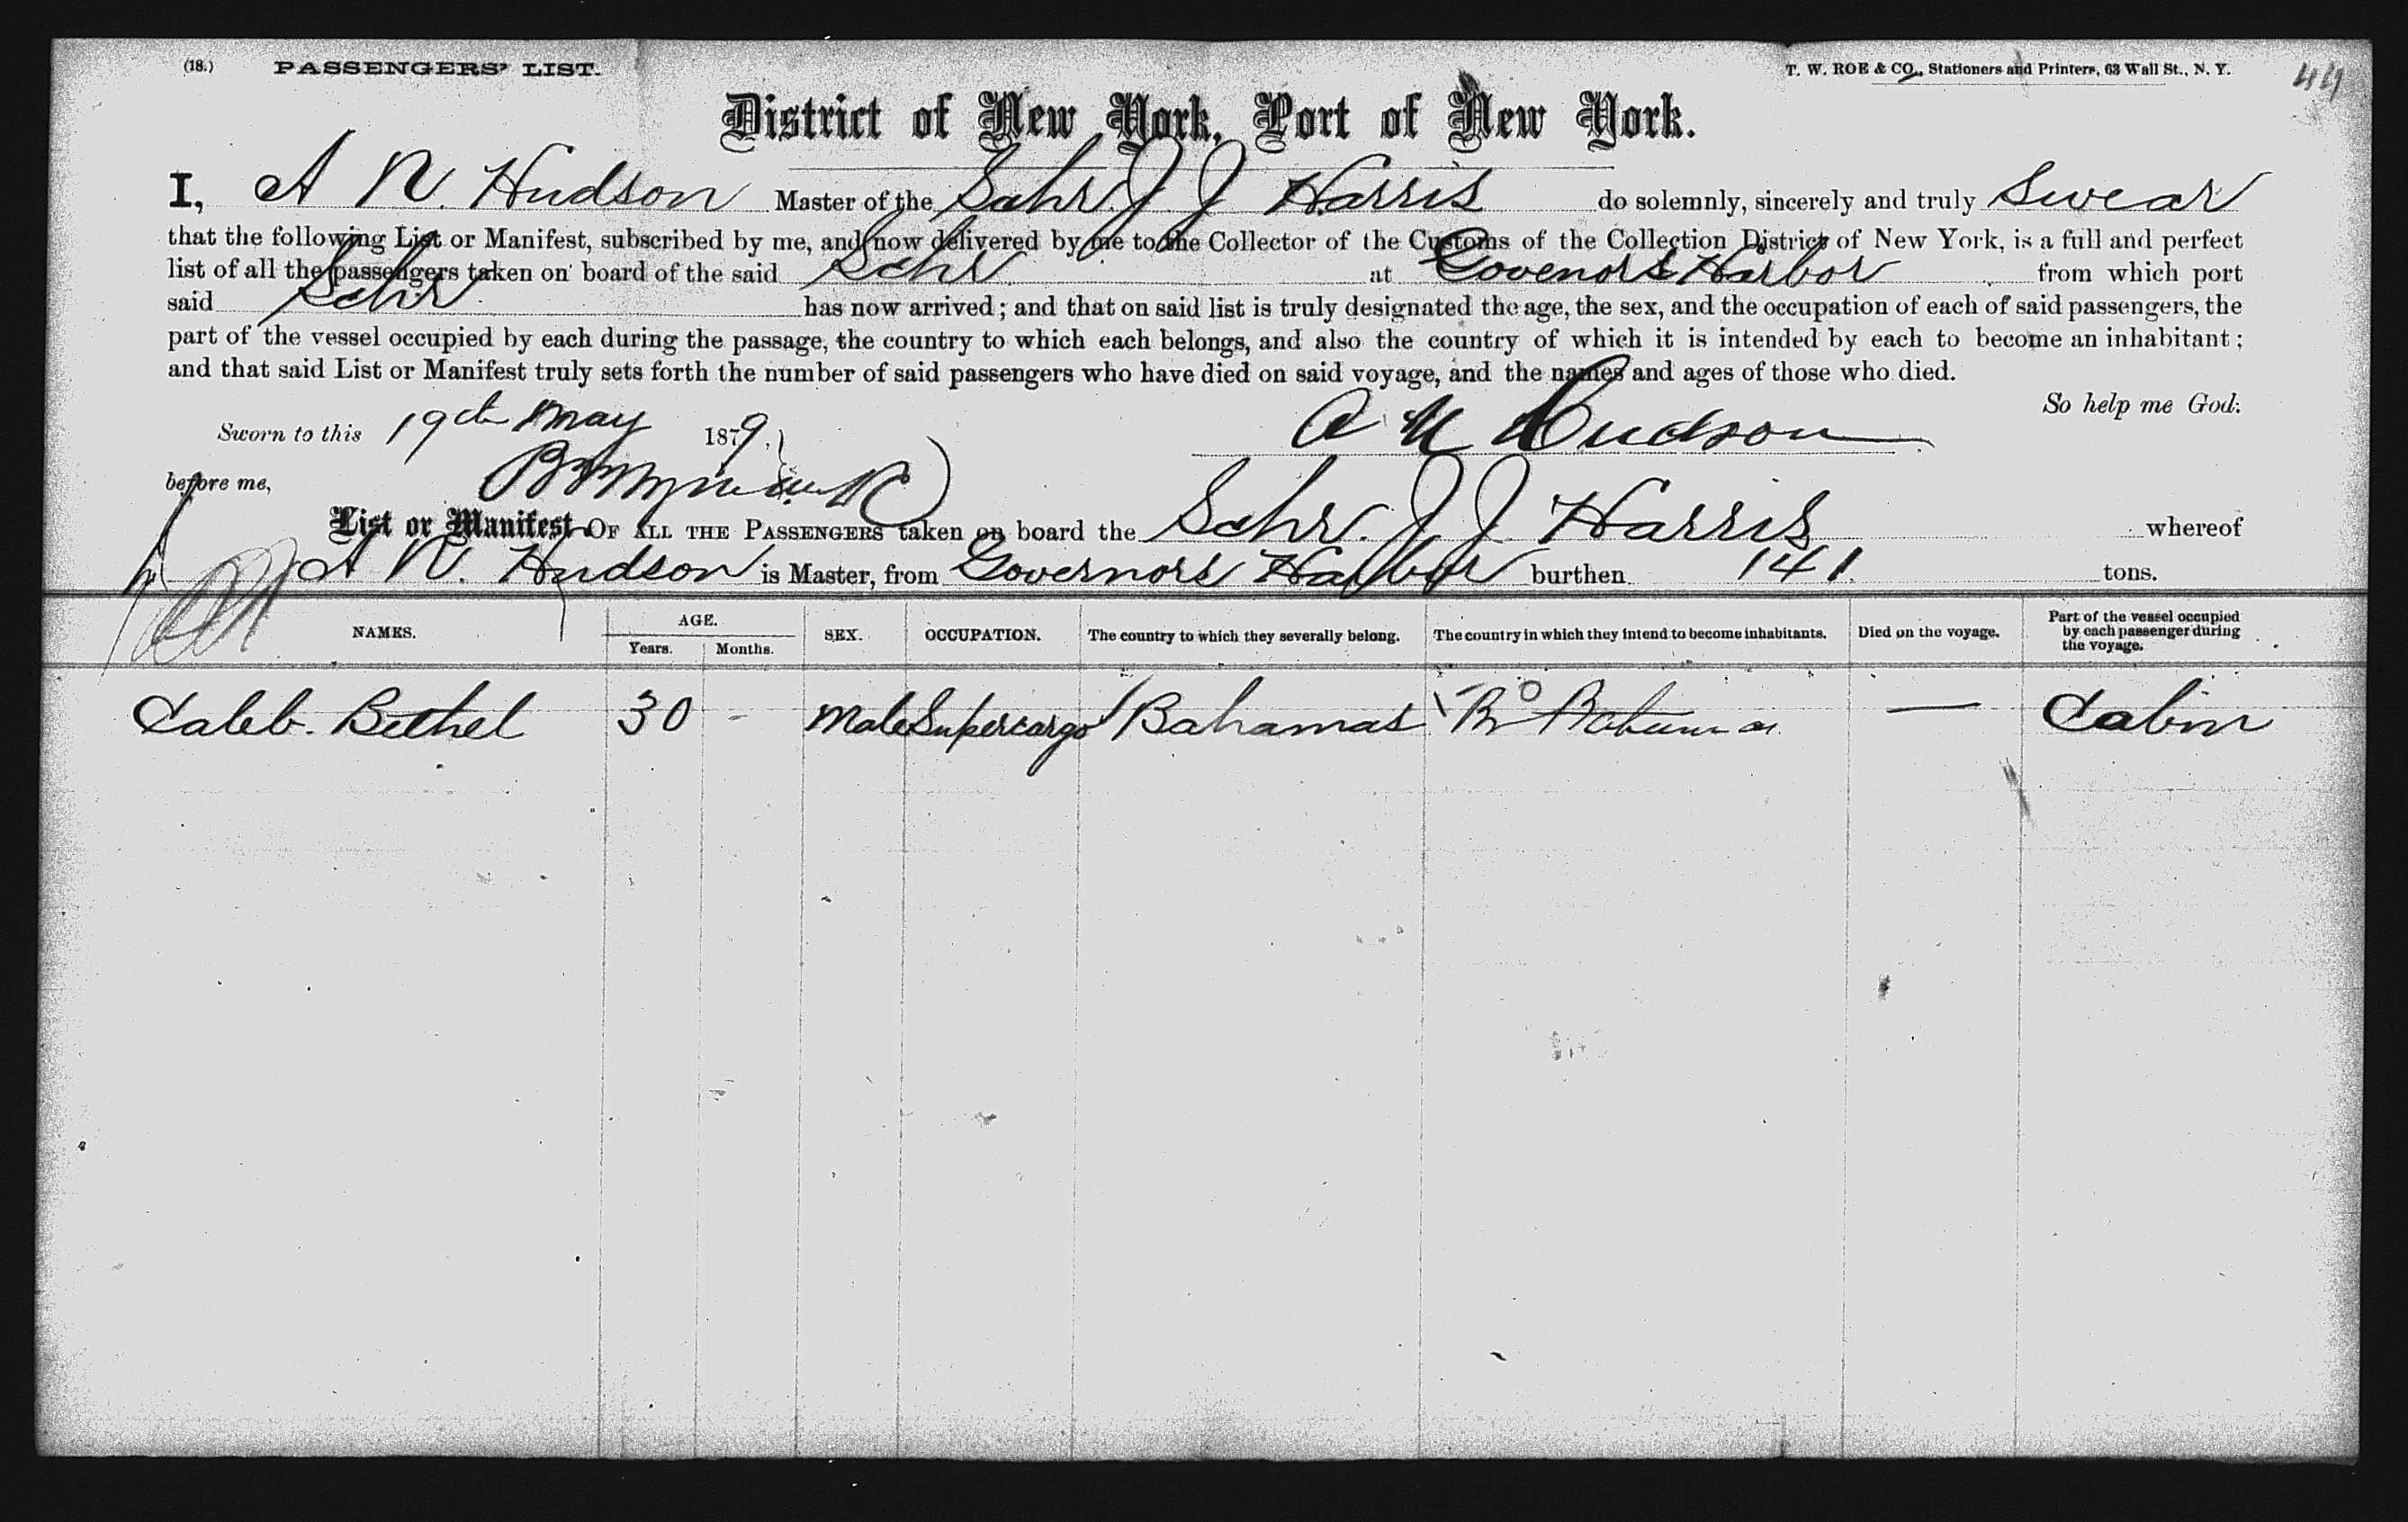 (18.) PASSENGERS' LIST. T. W. ROE & CO., Stationers and Printers, 63 Wall St., N. Y.
District of New York, Port of New York.
I, A N. Hudson Master of the Schr. J J Harris do solemnly, sincerely and truly Swear
that the following List or Manifest, subscribed by me, and now delivered by me to the Collector of the Customs of the Collection District of New York, is a full and perfect
list of all the passengers taken on board of the said Schr at Govenors Harbor from which port
said Schr has now arrived; and that on said list is truly designated the age, the sex, and the occupation of each of said passengers, the
part of the vessel occupied by each during the passage, the country to which each belongs, and also the country of which it is intended by each to become an inhabitant;
and that said List or Manifest truly sets forth the number of said passengers who have died on said voyage, and the names and ages of those who died.
So help me God.
Sworn to this 19th May 1879. A N Hudson
before me,
List or Manifest OF ALL THE PASSENGERS taken on board the Schr. J J Harris whereof
A N. Hudson is Master, from Governors Harbor burthen 141 tons.
NAMES. AGE. Years. Months. SEX. OCCUPATION. The country to which they severally belong. The country in which they intend to become inhabitants. Died on the voyage. Part of the vessel occupied by each passenger during the voyage.
Caleb. Bethel 30 - Male Supercargo Bahamas Bahamas — Cabin